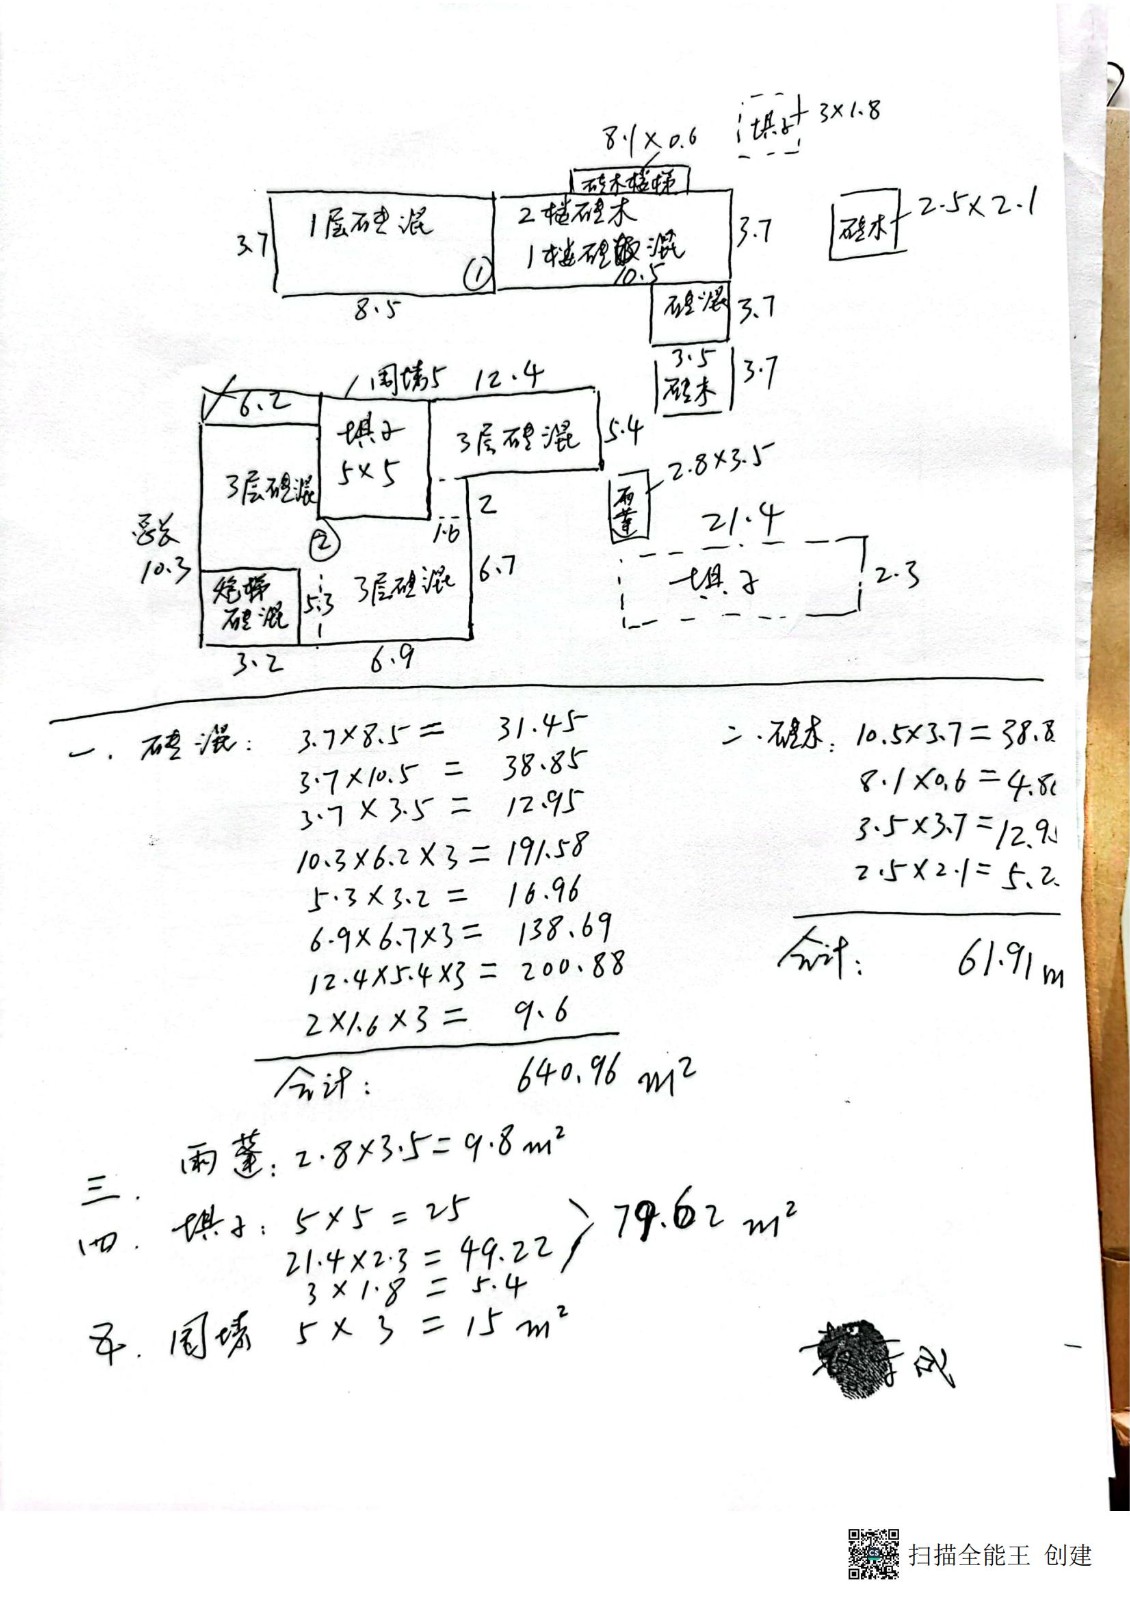 8.1×0.6
填子 3×1.8
砖木楼梯
1层砖混
2楼砖木
3.7
3.7
砖木
2.5×2.1
1楼砖混
①
10.5
8.5
砖混
3.7
3.5
3.7
砖木
围墙5
12.4
6.2
填子
5×5
3层砖混
5.4
3层砖混
2.8×3.5
雨蓬
2
1.6
②
21.4
总长
10.3
6.7
填子
2.3
楼梯
砖混
5.3
3层砖混
3.2
6.9
一. 砖混: 3.7×8.5= 31.45
3.7×10.5 = 38.85
3.7×3.5 = 12.95
10.3×6.2×3=191.58
5.3×3.2= 16.96
6.9×6.7×3= 138.69
12.4×5.4×3=200.88
2×1.6×3= 9.6
合计: 640.96 m²
二.砖木: 10.5×3.7=38.8
8.1×0.6=4.8
3.5×3.7=12.9
2.5×2.1=5.2
合计: 61.91m
三. 雨蓬: 2.8×3.5=9.8m²
四. 填子: 5×5=25
21.4×2.3=49.22
79.62 m²
3×1.8 = 5.4
五. 围墙 5×3=15m²
成
扫描全能王 创建